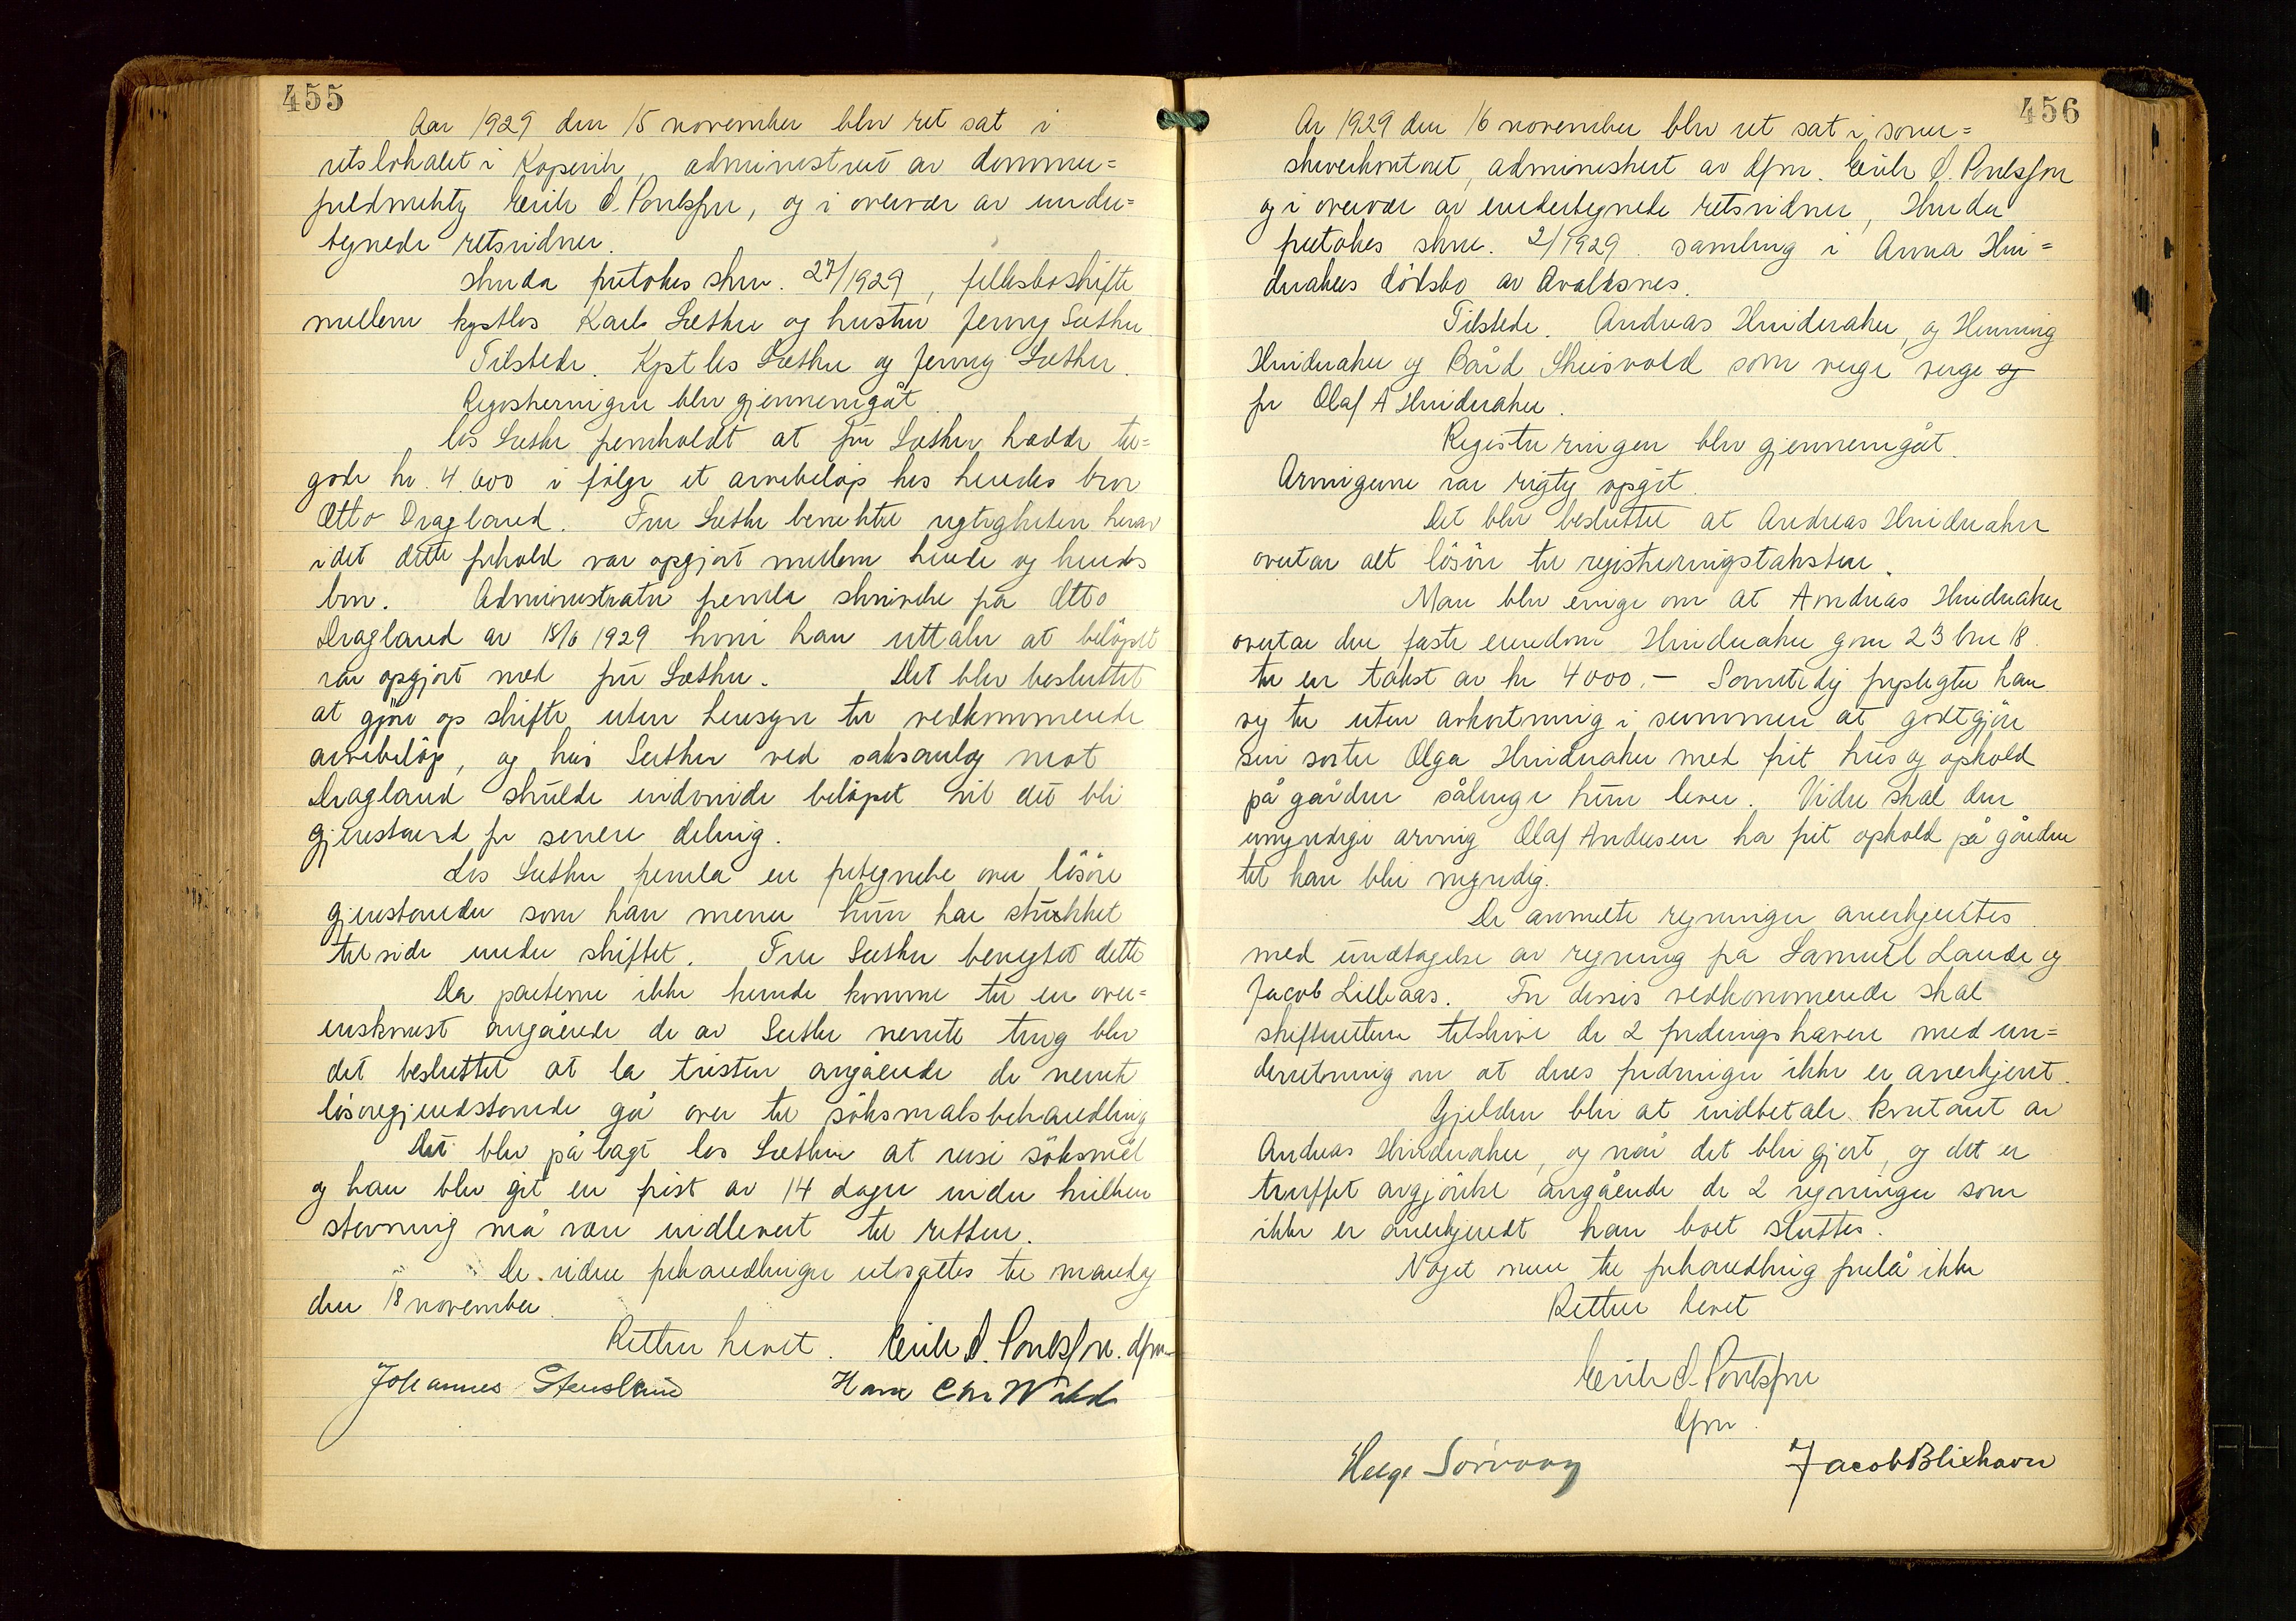 455
Aar 1929 den 15 november blev ret sat i
retslokalet i Kopervik, administrert av dommer=
fuldmektig Erik O. Poulsson, og i overvær av under=
tegnede retsvidner.
Herda foretokes skru. 27/1929, fellesboskifte
mellem kystlos Karl Sæther og hustru Jenny Sæther
Tilstede. Kystlos Sæther og Jenny Sæther.
Registreringen blev gjennemgåt.
los Sæther fremholdt at fru Sæther hadde til=
gode kr. 4.600 i følge et arvebeløp hos hendes bror
Otto Dragland. Fru Sæther benektet rigtigheten herav
idet dette forhold var opgjort mellem hende og hendes
bror. Administrator fremla skrivelse fra Otto
Dragland av 18/6 1929 hvori han uttaler at beløpet
var opgjort med fru Sæther. Det blev besluttet
at gjøre op skiftet uten hensyn til vedkommende
arvebeløp, og hvis Sæther ved saksanlæg mot
Dragland skulde indvinde beløpet vil det bli
gjenstand for senere deling.
Los Sæther fremla en fortegnelse over løsøre
gjenstander som han mener hun har stukket
tilside under skiftet. Fru Sæther benegtet dette
Da parterne ikke kunde komme til en over=
enskomst angående de av Sæther nevnte ting blev
det besluttet at la tvisten angående de nevnte
løsøregjendstande gå over til søksmålsbehandling
Det blev pålagt los Sæther at reise søksmål
og han blev git en frist av 14 dager inden hvilken
stevning må være indlevert til retten.
De videre forhandlinger utsattes til mandag
den 18 november.
Retten hevet. Erik O. Poulsson. dfm.
Johannes Stensland Hans Chr Wold
456
Ar 1929 den 16 november blev ret sat i soren=
skriverkontoret, administrert av dfm. Erik O. Poulsson
og i overvær av undertegnede retsvidner, Herda
foretokes skru. 2/1929 samling i Anna Hin=
deraker dødsbo av Avaldsnes.
Tilstede. Andreas Hinderaker, og Henning
Hinderaker og Bård Skeisvold som verge verge og
for Olaf A Hinderaker.
Registreringen blev gjennemgåt.
Arvingerne var rigtig opgit.
Det blev besluttet at Andreas Hinderaker
overtar alt løsøre til registreringstaksten.
Man blev enige om at Andreas Hinderaker
overtar den faste eiendom Hinderaker gnr 23 bnr 18.
til en takst av kr 4000.- Samtidig forpligter han
sig til uten avkortning i summen at godtgjøre
sin søster Olga Hinderaker med frit hus og ophold
på gården sålenge hun lever. Videre skal den
umyndige arving Olaf Andersen ha frit ophold på gården
til han blir myndig.
De anmeldte regninger anerkjentes
med undtagelse av regning fra Samuel Lande og
Jacob Lillaas. For disses vedkommende skal
skifteretten tilskrive de 2 fordringshavere med un=
derretning om at deres fordringer ikke er anerkjent.
Gjelden blir at indbetale kontant av
Andreas Hinderaker, og når det blir gjort, og det er
truffet avgjørelse angående de 2 regninger som
ikke er anerkjendt kan boet sluttes.
Noget mere til forhandling forelå ikke
Retten hevet
Erik O. Poulsson
dfm.
Helge Sørvaag Jacob Blikhavn